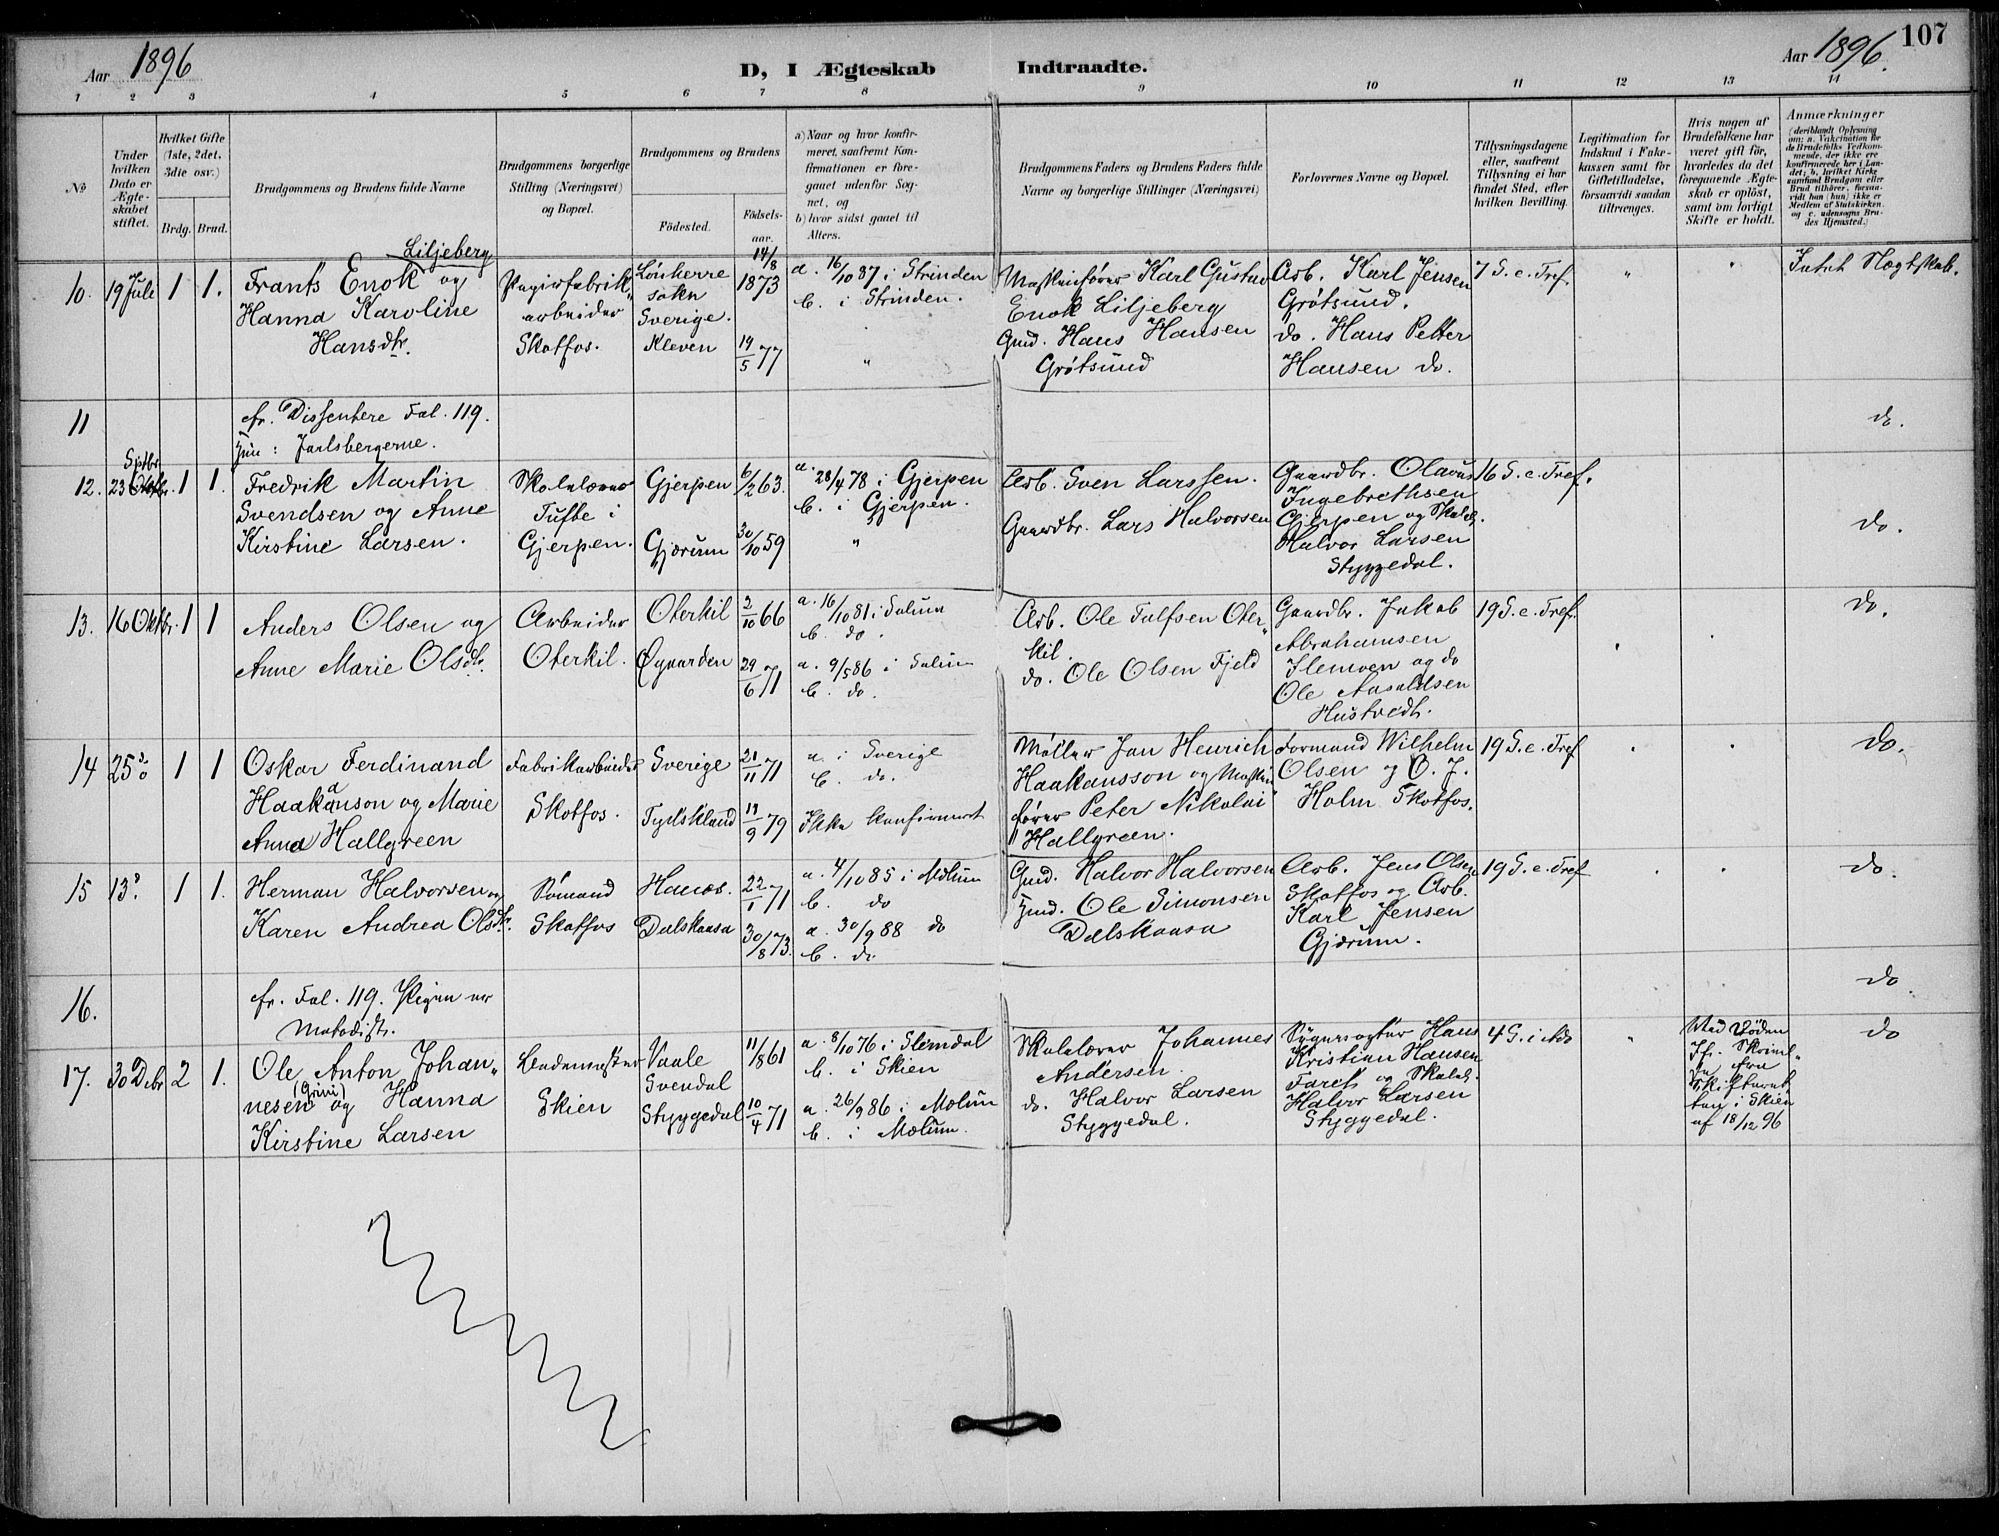 107
Aar 1896
D, I Ægteskab Indtraadte.
Aar 1896.
1 2 3 4 5 6 7 8 9 10 11 12 13 14
№
Under hvilken Dato er Ægteskabet stiftet.
Hvilket Gifte (1ste, 2det, 3die osv.)
Brdg. Brud.
Brudgommens og Brudens fulde Navne
Brudgommens borgerlige Stilling (Næringsvei) og Bopæl.
Brudgommens og Brudens
Fødested.
Fødselsaar.
a) Naar og hvor konfirmeret, saafremt Konfirmationen er foregaaet udenfor Sognet, og
b) hvor sidst gaaet til Alters.
Brudgommens Faders og Brudens Faders fulde Navne og borgerlige Stillinger (Næringsvei)
Forlovernes Navne og Bopæl.
Tillysningsdagene eller, saafremt Tillysning ei har fundet Sted, efter hvilken Bevilling.
Legitimation for Indskud i Enkekassen samt for Giftetilladelse, forsaavidt saadan tiltrænges.
Hvis nogen af Brudefolkene har været gift før, hvorledes da det foregaaende Ægteskab er opløst, samt om lovligt Skifte er holdt.
Anmærkninger
(deriblandt Oplysning om: a. Vakcination for de Brudefolks Vedkommende, der ikke ere konfirmerede her i Landet; b. hvilket Kirkesamfund Brudgom eller Brud tilhører, forsaavidt han (hun) ikke er Medlem af Statskirken og c. udensogns Brudes Hjemsted.)
10. 19 Juli 1 1.
Liljeberg
Frants Enok og
Hanna Karoline
Hansdtr.
Papirfabrik„
arbeider
Skotfos.
Lönherre
sokn
Sverige.
Kleven
14/8
1873
19/5 77
a. 16/10 87 i Strinden
b. i Strinden.
"
Maskinfører Karl Gustav
Enok Liljeberg
Gmd. Hans Hansen
Grøtsund
Arb. Karl Jensen
Grøtsund.
do. Hans Petter
Hansen do.
7 S. e. Tref.
Intet Slægtskab.
11
cfr. Dissentere Fol. 119.
Jarlsbergerne.
do.
12. 23 Sptbr. 1 1.
Fredrik Martin
Svendsen og Anne
Kirstine Larsen.
Skolelærer
Tufte i
Gjerpen.
Gjerpen
Gjærum
6/2 63.
30/10 59
a. 28/4 78 i Gjerpen
b. i Gjerpen.
"
Arb. Sven Larssen.
Gaardbr. Lars Halvorsen
Gaardbr. Olavus
Ingebrethsen
Gjerpen og Skolel.
Halvor Larsen
Styggedal.
16 S. e. Tref.
do.
13. 16 Oktbr. 1 1
Anders Olsen og
Anne Marie Olsdtr.
Arbeider
Oterkil.
Oterkil
Øgaarden
2/10 66
29/6 71
a. 16/10 81 i Solum
b. do.
a. 9/5 86 i Solum
b. do.
Arb. Ole Tolfsen Oter„
kil.
do. Ole Olsen Fjeld
Gaardbr. Jakob
Abrahamsen
og do
Ole
Hustvedt.
19 S. e. Tref.
do.
14 25 do 1 1
Oskar Ferdinand
Haakanson og Marie
Anna Hallgreen
Fabrikarbeider
Skotfos.
Sverige
Tydskland
21/11 71
19/9 79
a. i Sverige
b. do.
Ikke konfirmert
Møller Jan Henrich
Haakansson og Maskin
fører Peter Nikolai
Hallgreen.
Formand Wilhelm
Olsen og O. J.
Holm Skotfos.
19 S. e. Tref
do.
15 13. 1 1.
Herman Halvorsen og
Karen Andrea Olsdtr.
Sømand
Skotfos
Hanæs.
Dælskaasa
22/1 71
30/8 73.
a. 4/10 85 i Mælum
b. do
a. 30/9 88 do
b. do
Gmd. Halvor Halvorsen
Gmd. Ole Simonsen
Dælskaasa
Arb. Jens Olsen
Skotfos og Arb.
Karl Jensen
Gjærum.
19 S. e. Tref
do.
16.
cfr. Fol. 119. Pigen er
Metodist.
do
17. 30 Dcbr 2 1.
Ole Anton Johan„
nesen og Hanna
Kirstine Larsen
Skien
Vaale
Svendal
Styggedal
11/8 61
10/4 71
a. 8/10 76 i Slemdal
b. i Skien
a. 26/9 86 i Mælum
b. i Mælum.
Skolelærer Johannes
Andersen.
do. Halvor Larsen
Styggedal.
Sygevogter Hans
Kristian Hansen
Faret og Skolel.
Halvor Larsen
Styggedal.
4 S. i Adv
Ved Døden
Jfr. Skrivel„
se fra
Skifteret
ten i Skien
af 18/12 96
do